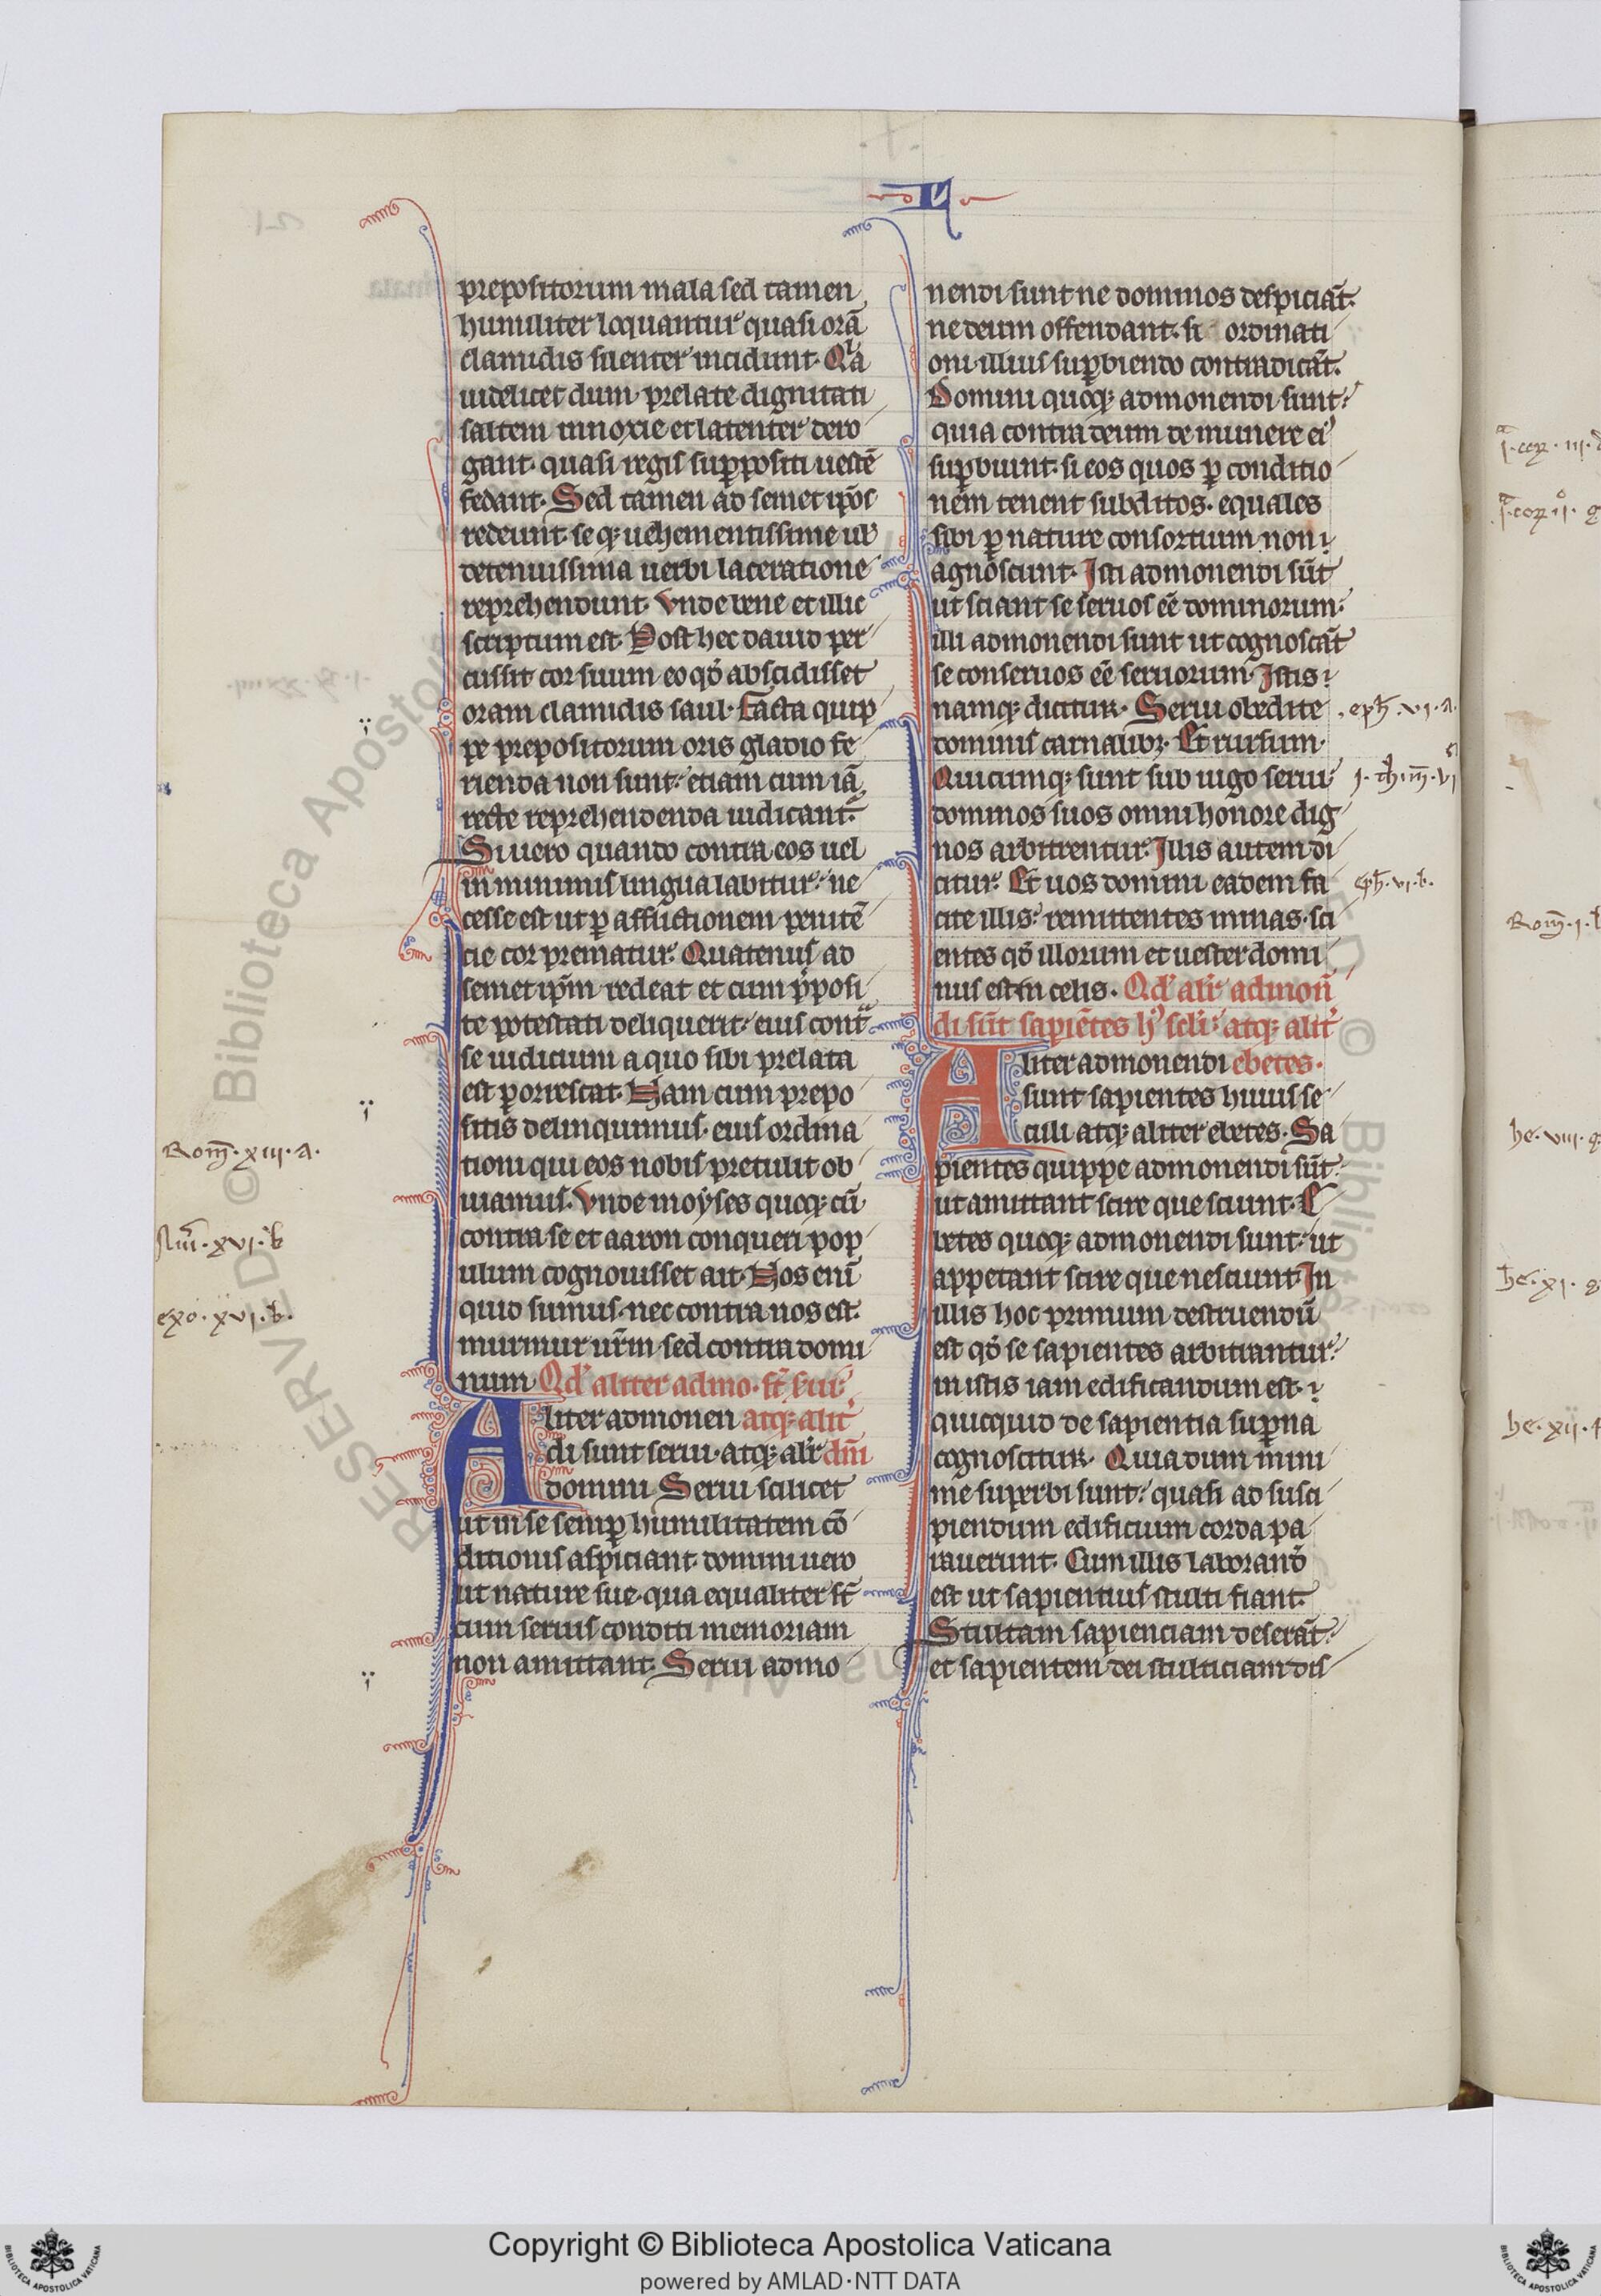 prepositorum mala sed tamen
humiliter loquantur quasi orā
clamidis silenter incidunt. Q̇a
uidelicet dum prelate dignitati
saltem innoxie et latenter dero
gant. quasi regis suꝑpositi uestē
fedant. Sed tamen ad semet ip̄os
redeunt. se qꝫ uehementissime ub̾
de tenuissima uerbi laceratione
reprehendunt. Vnde bene et illic
scriptum est. Post hec dauid per
cussit cor suum eo qd̾ abscidisset
oram clamidis saul. Facta quip
pe prepositorum oris gladio fe
rienda non sunt. etiam cum iā
recte reprehendenda iudicant̾.
Si uero quando contra eos uel
in minimis lingua labitur. ne
cesse est ut ꝑ afflictionem penitē
cie cor prematur. Quatenus ad
semet ip̄m redeat et cum p̾posi
te potestati deliquerit. eius contᵃ
se iudicium a quo sibi prelata
est ꝑorrescat. Nam cum prepo
sitis delinquimus. eius ordina
tioni qui eos nobis pretulit ob
uiamus. Vnde moyses quoqꝫ cū
contra se et aaron conqueri pop
ulum cognouisset ait. Nos enī
quid sumus. nec contra nos est.
murmur ur̄m sed contra domi
num Qd̾ aliter admo. st̄ s̾ui
Aliter admonen atqꝫ alit̾
di sunt serui. atqꝫ alit̾ dn̄i
domini. Serui scilicet
ut in se semꝑ humilitatem cō
ditionis aspiciant. domini uero
ut nature sue. qua equaliter st̄
cum seruis conditi memoriam
non amittant. Serui admo
nendi sunt ne dominos despiciāt.
ne deum offendant. si ordinati
oni illius suꝑbiendo contradicāt.
Domini quoqꝫ admonendi sunt.
quia contra deum de munere ei᾽
suꝑbiunt. si eos quos ꝑ conditio
nem tenent subditos. equales
sibi ꝑ nature consortium non
agnoscunt. Isti admonendi sūt
ut sciant se seruos eē dominorum.
illi admonendi sunt ut cognoscāt
se conseruos eē seruorum. Istis
namqꝫ dicitur. Serui obedite
dominis carnalibꝫ. Et rursum.
Quicumqꝫ sunt sub iugo serui
dominos suos omni honore dig
nos arbitrentur. Illis autem di
citur. Et uos domini eadem fa
cite illis. remittentes minas. sci
entes qd̾ illorum et uester domi
nus est in celis. Qd̾ alit̾ admon̄
di sūt sapiētes h᾽ scl̾i. atqꝫ alit̾
Aliter admonendi ebetes.
sunt sapientes huius se
culi atqꝫ aliter ebetes. Sa
pientes quippe admonendi sūt.
ut amittant scire que sciunt. E
betes quoqꝫ admonendi sunt. ut
appetant scire que nesciunt. In
illis hoc primum destruendū
est qd̾ se sapientes arbitrantur.
in istis iam edificandum est.
quicquid de sapientia suꝑna
cognoscitur. Quia dum mini
me superbi sunt. quasi ad susci
piendum edificium corda pa
rauerunt. Cum illis laborand̾
est ut sapientius stulti fiant.
Stultam sapienciam deserāt.
et sapientem dei stulticiam dis
Rom̄. xiii. a.
Nūi. xvi. b
exo. xvi. b.
eph̄. vi. a.
i. thīm. vi
eph̄. vi. b.
Copyright © Biblioteca Apostolica Vaticana
powered by AMLAD·NTT DATA